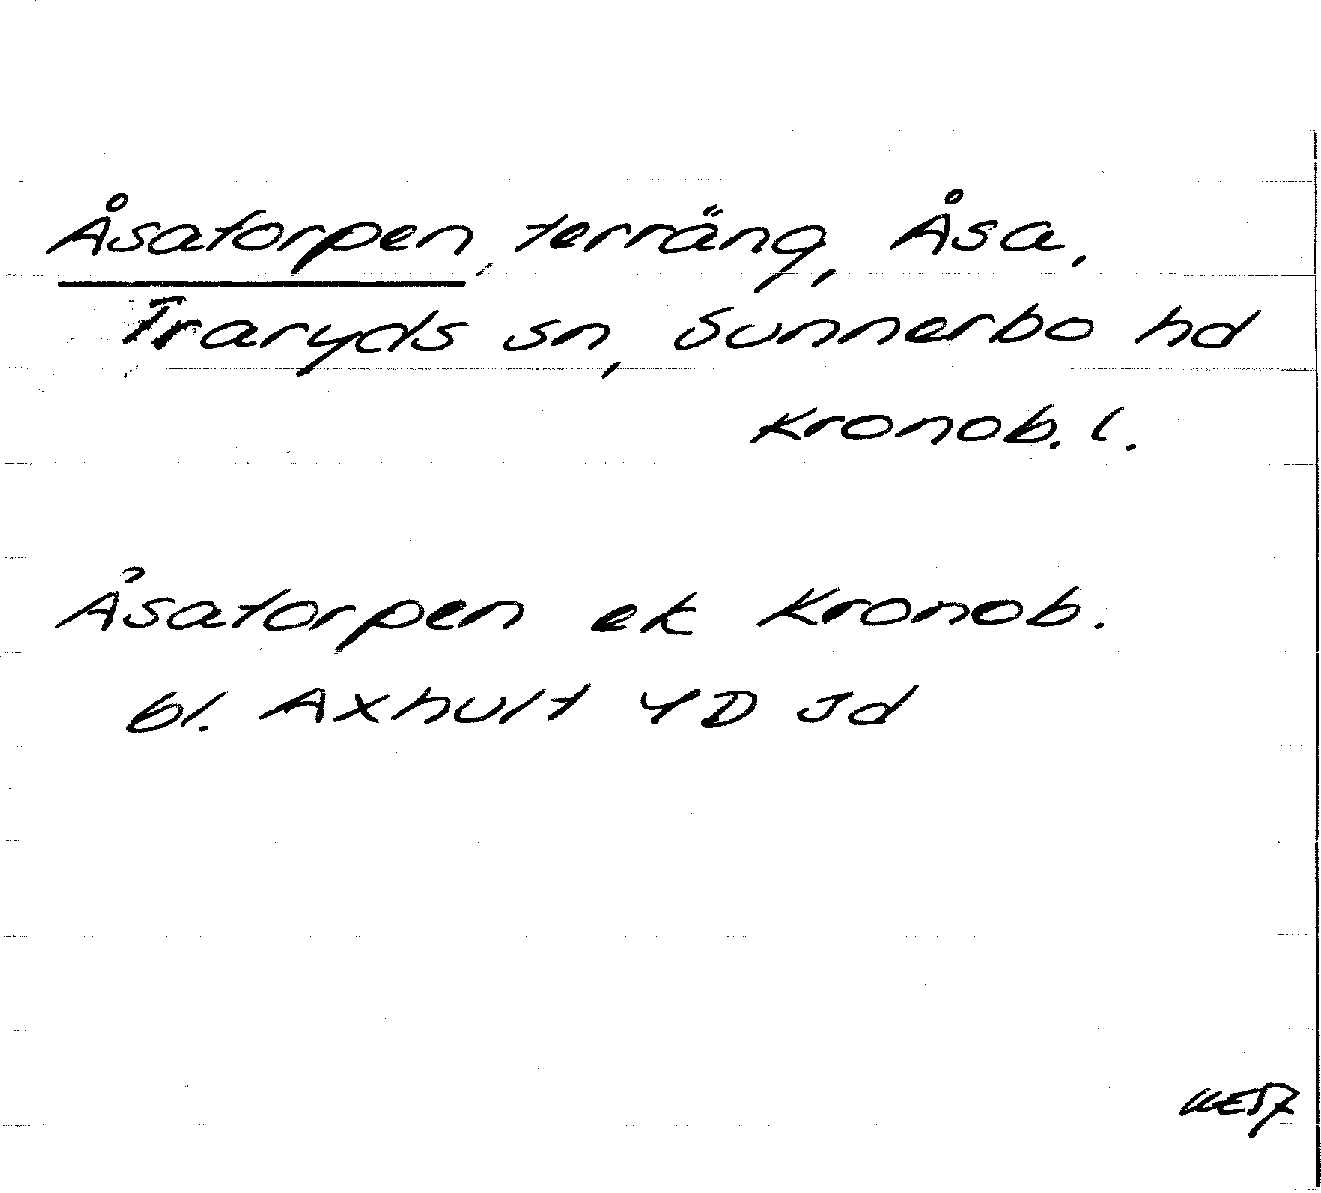 Åsatorpen, terräng, Åsa,
Traryds sn, Sunnerbo hd
Kronob. l.
Åsatorpen ek Kronob.
bl. Axhult 4D Jd